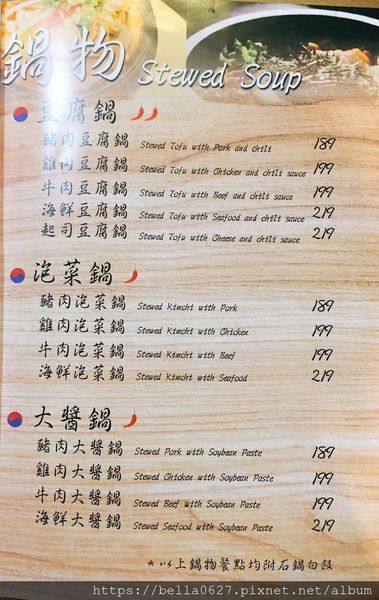 鍋物 Stewed Soup
豆腐鍋
豬肉豆腐鍋 Stewed Tofu with Pork and chili 189
雞肉豆腐鍋 Stewed Tofu with Chicken and chili sauce 199
牛肉豆腐鍋 Stewed Tofu with Beef and chili sauce 199
海鮮豆腐鍋 Stewed Tofu with Seafood and chili sauce 219
起司豆腐鍋 Stewed Tofu with Cheese and chili sauce 219
泡菜鍋
豬肉泡菜鍋 Stewed Kimchi with Pork 189
雞肉泡菜鍋 Stewed Kimchi with Chicken 199
牛肉泡菜鍋 Stewed Kimchi with Beef 199
海鮮泡菜鍋 Stewed Kimchi with Seafood 219
大醬鍋
豬肉大醬鍋 Stewed Pork with Soybean Paste 189
雞肉大醬鍋 Stewed Chicken with Soybean Paste 199
牛肉大醬鍋 Stewed Beef with Soybean Paste 199
海鮮大醬鍋 Stewed Seafood with Soybean Paste 219
*以上鍋物餐點均附石鍋白飯
https://bella0627.pixnet.net/album